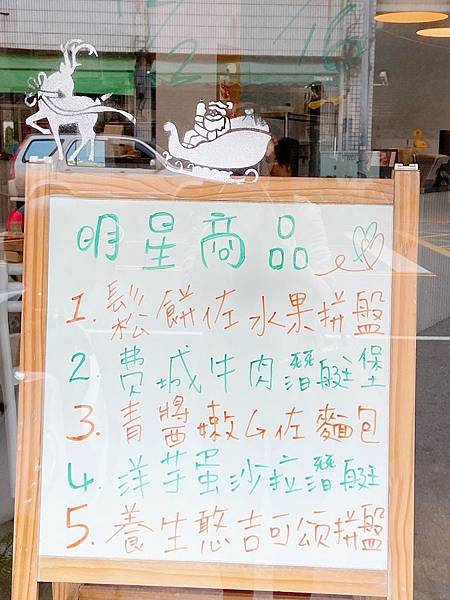 明星商品
1. 鬆餅佐水果拼盤
2. 費城牛肉潛艇堡
3. 青醬嫩ㄐ佐麵包
4. 洋芋蛋沙拉潛艇
5. 養生憨吉可頌拼盤